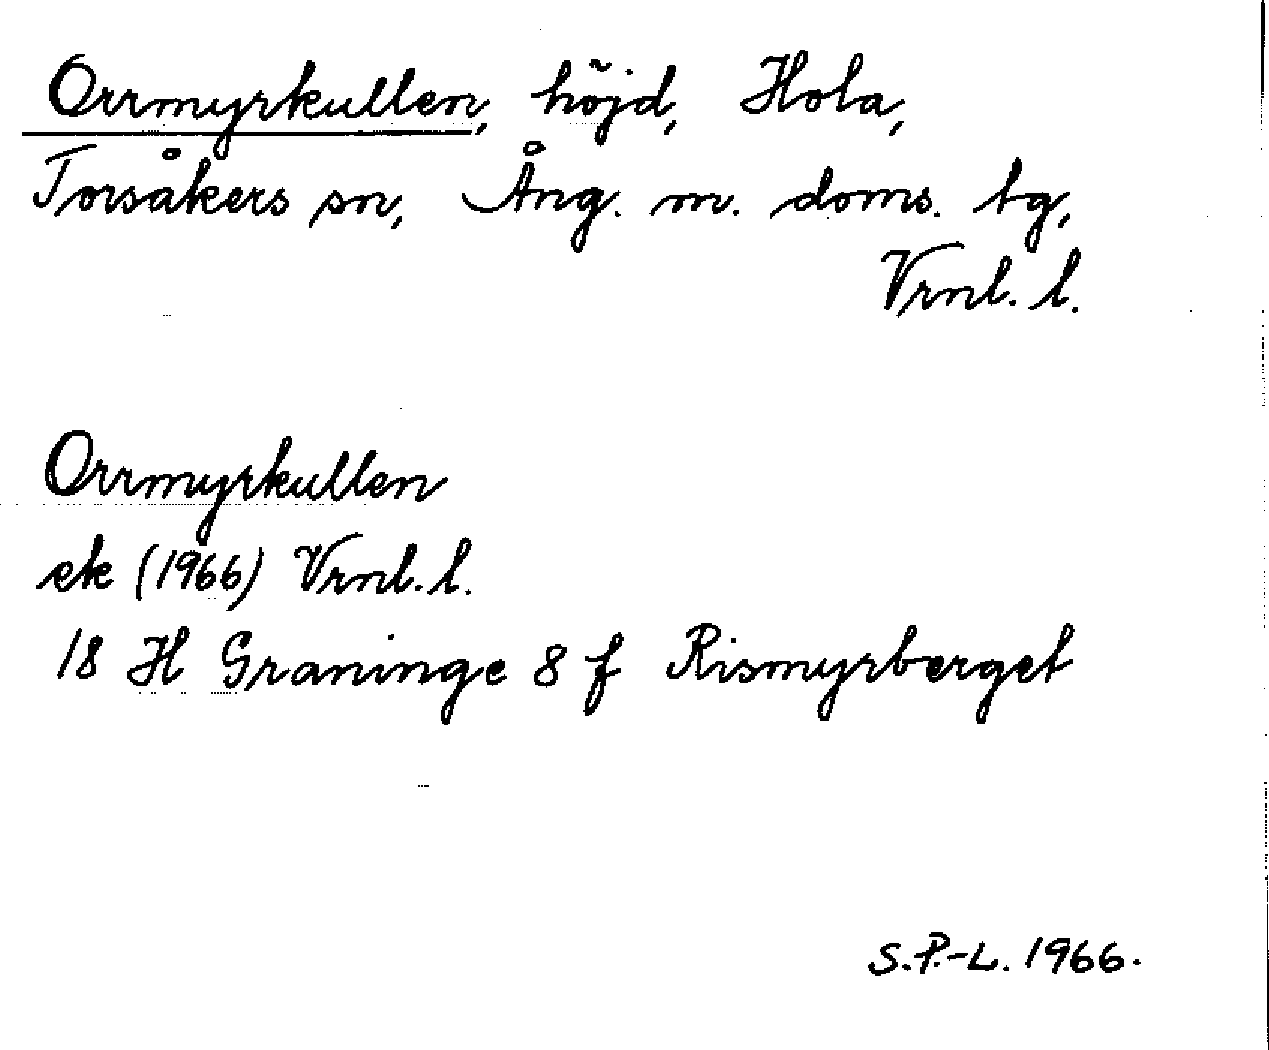 Orrmyrkullen, höjd, Hola,
Torsåkers sn, Ång. m. doms. tg,
Vrnl. l.
Orrmyrkullen
ek (1966) Vrnl. l.
18 H Graninge 8 f Rismyrberget
S.P.-L. 1966.